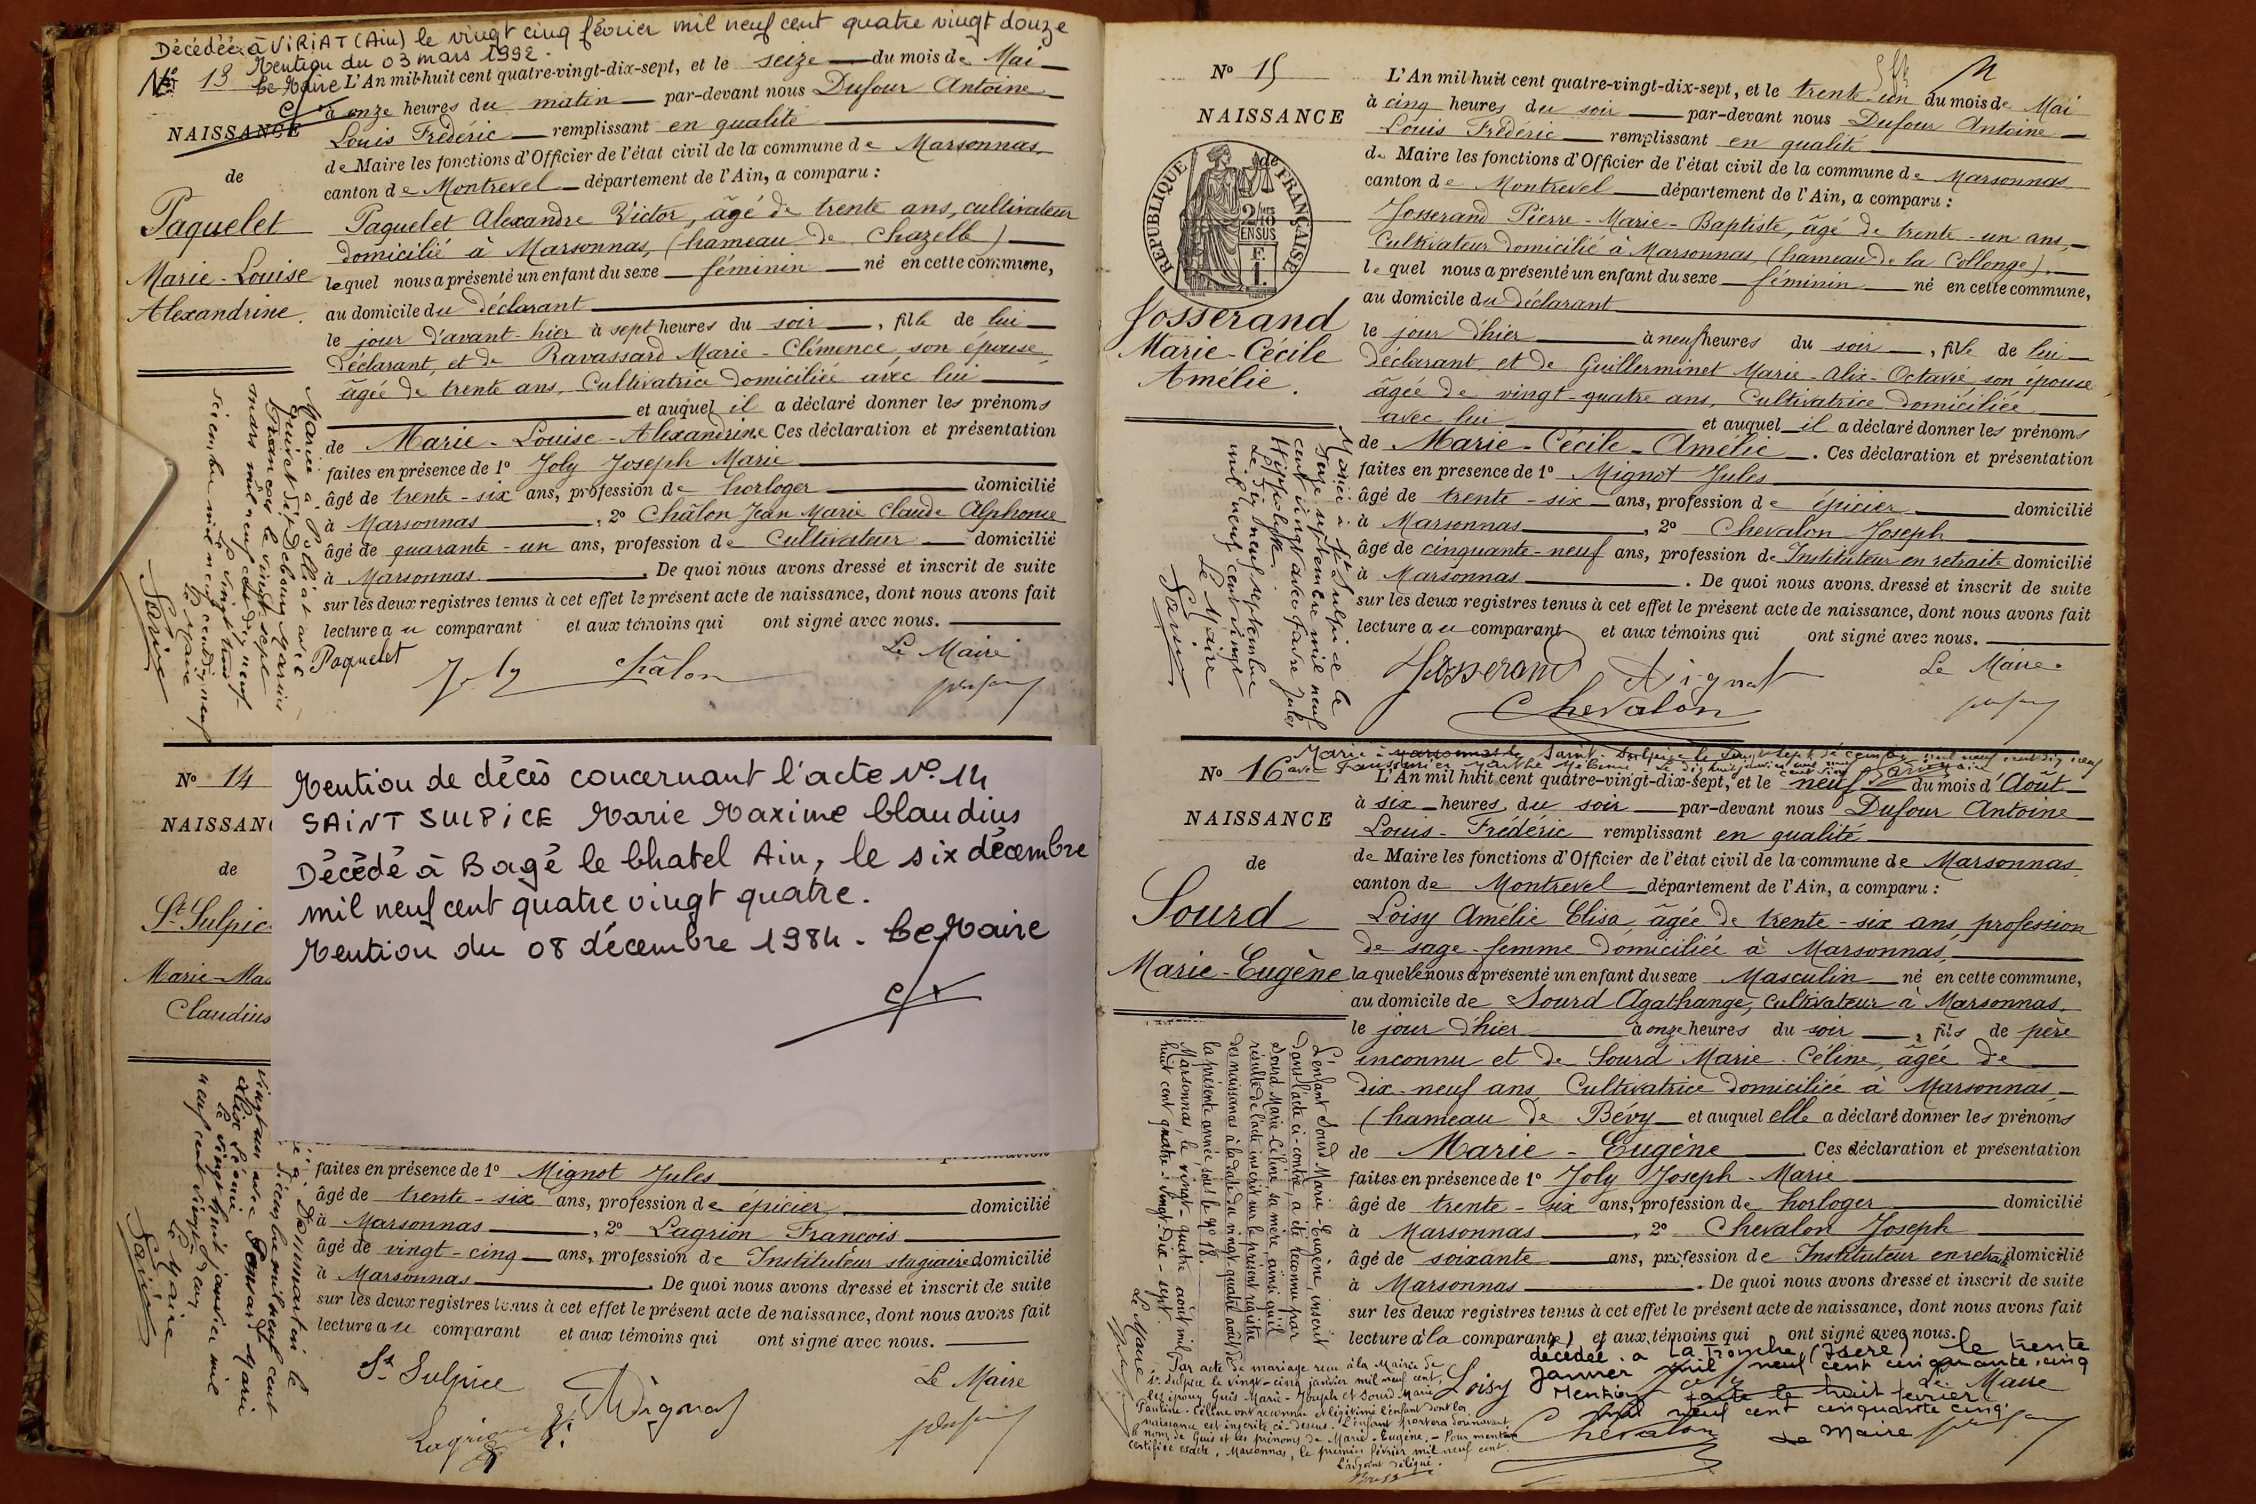 Décédée à VIRIAT (Ain) le vingt cinq février mil neuf cent quatre vingt douze
Mention du 03 mars 1992.
Le Maire
No 13
NAISSANCE
de
Paquelet
Marie-Louise
Alexandrine.
L'An mil-huit cent quatre-vingt-dix-sept, et le seize du mois de Mai
à onze heures du matin par-devant nous Dufour Antoine
Louis Frédéric remplissant en qualité
de Maire les fonctions d'Officier de l'état civil de la commune de Marsonnas
canton de Montrevel département de l'Ain, a comparu :
Paquelet Alexandre Victor, âgé de trente ans, cultivateur
domicilié à Marsonnas, (hameau de Chazelle)
lequel nous a présenté un enfant du sexe féminin né en cette commune,
au domicile du déclarant
le jour d'avant-hier à sept heures du soir, fille de lui
déclarant, et de Ravassard Marie-Clémence, son épouse,
âgée de trente ans, Cultivatrice domiciliée avec lui
et auquel il a déclaré donner les prénoms
de Marie-Louise-Alexandrine Ces déclaration et présentation
faites en présence de 1o Joly Joseph Marie
âgé de trente-six ans, profession de horloger domicilié
à Marsonnas, 2o Châlon Jean Marie Claude Alphonse
âgé de quarante-un ans, profession de Cultivateur domicilié
à Marsonnas. De quoi nous avons dressé et inscrit de suite
sur les deux registres tenus à cet effet le présent acte de naissance, dont nous avons fait
lecture au comparant et aux témoins qui ont signé avec nous.
Paquelet Joly Châlon
Le Maire
Mariée à Polliat avec
le vingt sept
mars mil neuf cent dix neuf
Le Maire
No 14
NAISSAN
de
St Sulpic
Marie-Ma
Claudius
Mention de décès concernant l'acte No 14
SAINT SULPICE Marie Maxime Claudius
Décédé à Bagé le Chatel Ain, le six décembre
mil neuf cent quatre vingt quatre.
Mention du 08 décembre 1984. Le Maire
faites en présence de 1o Mignot Jules
âgé de trente-six ans, profession de épicier domicilié
à Marsonnas, 2o Lagrion François
âgé de vingt-cinq ans, profession de Instituteur stagiaire domicilié
à Marsonnas. De quoi nous avons dressé et inscrit de suite
sur les deux registres tenus à cet effet le présent acte de naissance, dont nous avons fait
lecture au comparant et aux témoins qui ont signé avec nous.
St Sulpice
Mignot
Lagrion
Le Maire
Dommartin le
décembre mil neuf cent
vingt un avec Marie
Le vingt huit janvier mil
neuf cent vingt deux
Le Maire
No 15
NAISSANCE
de
RÉPUBLIQUE FRANÇAISE
2/10
EN SUS
F.
1.
Josserand
Marie-Cécile
Amélie.
L'An mil huit cent quatre-vingt-dix-sept, et le trente-un du mois de Mai
à cinq heures du soir par-devant nous Dufour Antoine
Louis Frédéric remplissant en qualité
de Maire les fonctions d'Officier de l'état civil de la commune de Marsonnas
canton de Montrevel département de l'Ain, a comparu :
Josserand Pierre-Marie-Baptiste, âgé de trente-un ans,
Cultivateur domicilié à Marsonnas (hameau de la Collonge),
lequel nous a présenté un enfant du sexe féminin né en cette commune,
au domicile du déclarant
le jour d'hier à neuf heures du soir, fille de lui
déclarant, et de Guillerminet Marie-Alix-Octavie, son épouse
âgée de vingt-quatre ans, Cultivatrice domiciliée
avec lui et auquel il a déclaré donner les prénoms
de Marie-Cécile-Amélie. Ces déclaration et présentation
faites en présence de 1o Mignot Jules
âgé de trente-six ans, profession de épicier domicilié
à Marsonnas, 2o Chevalon Joseph
âgé de cinquante-neuf ans, profession de Instituteur en retraite domicilié
à Marsonnas. De quoi nous avons dressé et inscrit de suite
sur les deux registres tenus à cet effet le présent acte de naissance, dont nous avons fait
lecture au comparant et aux témoins qui ont signé avec nous.
Josserand Mignot
Chevalon
Le Maire
Mariée à St Sulpice le
seize septembre mil neuf
cent vingt avec Favre Jules
Hippolyte.
Le dix neuf septembre
mil neuf cent vingt
Le Maire
Marié à Saint-Sulpice le vingt sept décembre mil neuf cent dix neuf
No 16
NAISSANCE
de
Sourd
Marie-Eugène
L'An mil huit cent quatre-vingt-dix-sept, et le neuf du mois d'Août
à six heures du soir par-devant nous Dufour Antoine
Louis-Frédéric remplissant en qualité
de Maire les fonctions d'Officier de l'état civil de la commune de Marsonnas
canton de Montrevel département de l'Ain, a comparu :
Loisy Amélie Elisa, âgée de trente-six ans profession
de sage-femme domiciliée à Marsonnas,
laquelle nous a présenté un enfant du sexe Masculin né en cette commune,
au domicile de Sourd Agathange, Cultivateur à Marsonnas,
le jour d'hier à onze heures du soir, fils de père
inconnu et de Sourd Marie-Céline, âgée de
dix-neuf ans, Cultivatrice domiciliée à Marsonnas,
(hameau de Bévy et auquel elle a déclaré donner les prénoms
de Marie-Eugène Ces déclaration et présentation
faites en présence de 1o Joly Joseph-Marie
âgé de trente-six ans, profession de horloger domicilié
à Marsonnas, 2o Chevalon Joseph
âgé de soixante ans, profession de Instituteur en retraite domicilié
à Marsonnas. De quoi nous avons dressé et inscrit de suite
sur les deux registres tenus à cet effet le présent acte de naissance, dont nous avons fait
lecture à la comparante et aux témoins qui ont signé avec nous.
L'enfant Sourd Marie-Eugène, inscrit
dans l'acte ci-contre, a été reconnu par
Sourd Marie-Céline sa mère, ainsi qu'il
résulte de l'acte inscrit sur le présent registre
des naissances à la date du vingt-quatre août de
la présente année, sous le No 18.
Marsonnas, le vingt-quatre août mil
huit cent quatre-vingt-dix-sept.
Le Maire
Par acte de mariage reçu à la Mairie de
St Sulpice le vingt-cinq janvier mil neuf cent,
les époux Guis Marie-Joseph et Sourd Marie
Pauline-Céline ont reconnu et légitimé l'enfant dont la
naissance est inscrite ci-dessus. L'enfant portera dorénavant
le nom de Guis et les prénoms de Marie-Eugène. Pour mention
certifiée exacte, Marsonnas, le premier février mil neuf cent.
L'adjoint délégué.
Loisy
décédée a La Tronche (Isère) le trente
Janvier mil neuf cent cinquante cinq
Mention faite le huit février
mil neuf cent cinquante cinq.
Le Maire
Chevalon
Le Maire